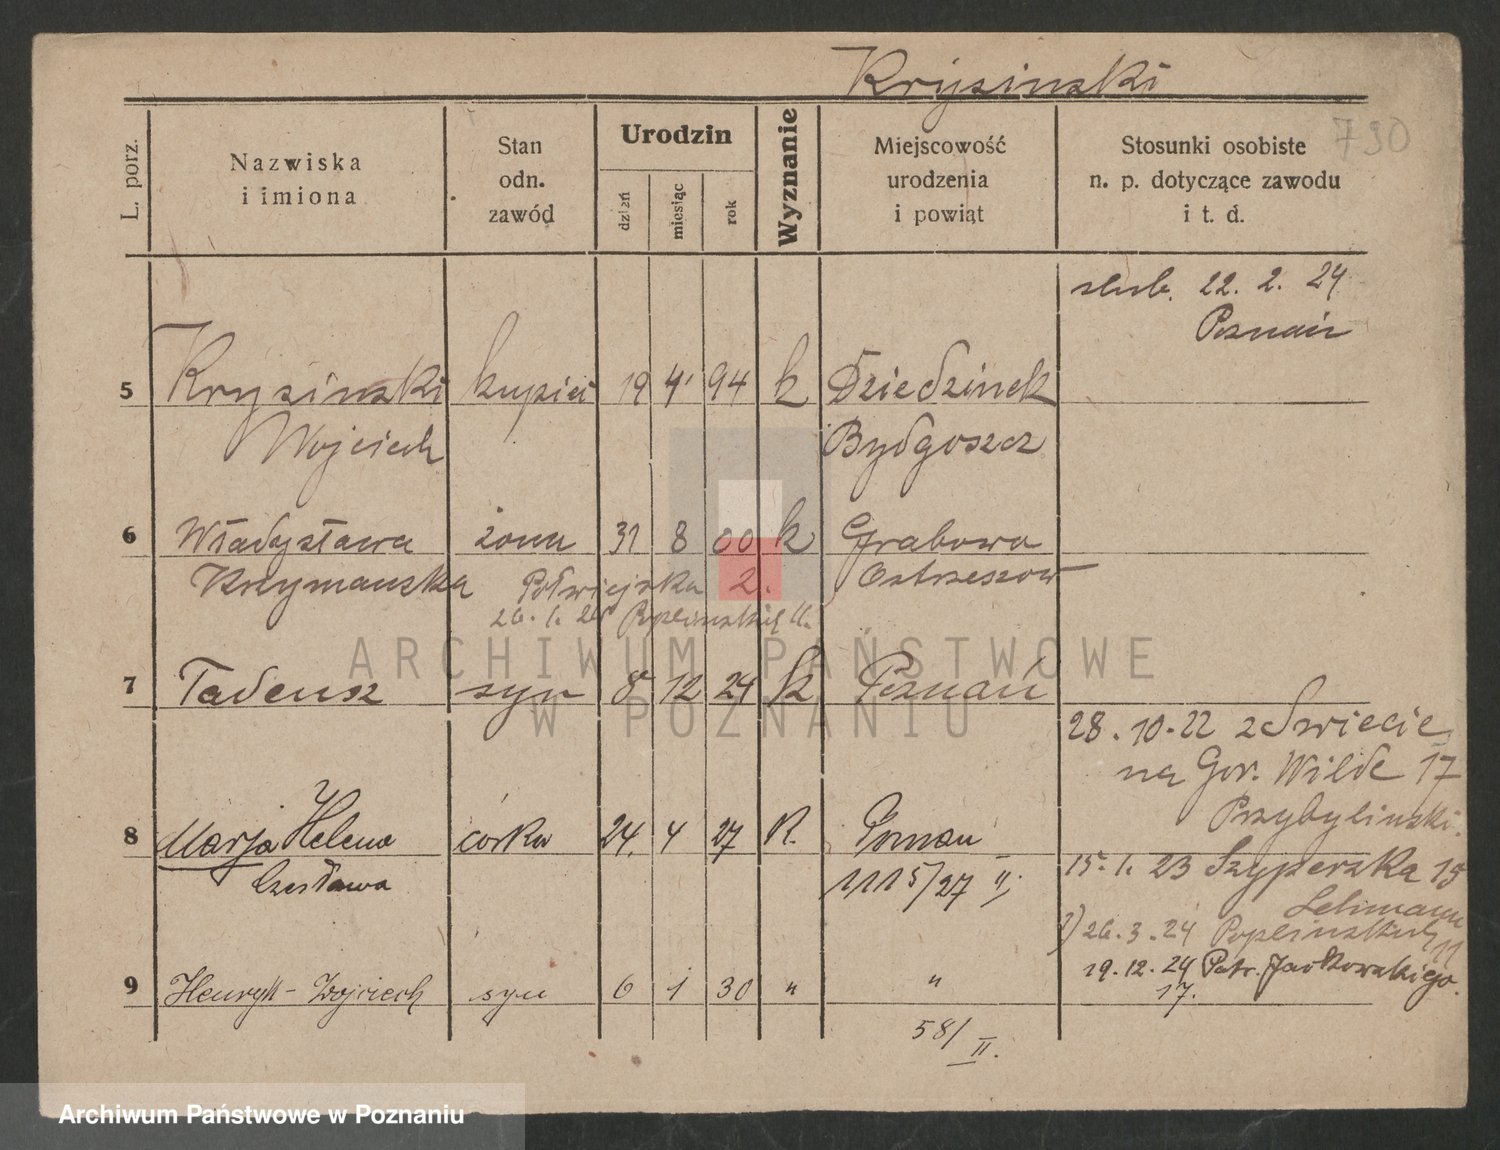 Krysinski
790
L. porz.
Nazwiska
i imiona
Stan
odn.
zawód
Urodzin
dzień
miesiąc
rok
Wyznanie
Miejscowość
urodzenia
i powiat
Stosunki osobiste
n. p. dotyczące zawodu
i t. d.
slub. 22. 2. 24
Poznań
5 Krysinski kupiec 19 4 94 k Dziedzinek
Wojciech Bydgoszcz
6 Władysława żona 31 8 00 k Grabowo
Krzymanska Półwiejska 2. Ostrzeszow
26. 1. 26 Poplinskich 11.
ARCHIWUM PAŃSTWOWE
W POZNANIU
7 Tadeusz syn 8 12 24 k Poznań
28. 10. 22 z Swiecie
na Gór. Wilde 17
Przybylinski.
8 Marja Helena córka 24. 4 27 R. Poznan
Czesława 1115/27 II;
15. 1. 23 Szyperska 15
Lehmann
2) 26. 3. 24 Poplinskich 11
19. 12. 24 Patr. Jackowskiego
17.
9 Henryk - Wojciech syn 6 1 30 " "
58/II.
Archiwum Państwowe w Poznaniu